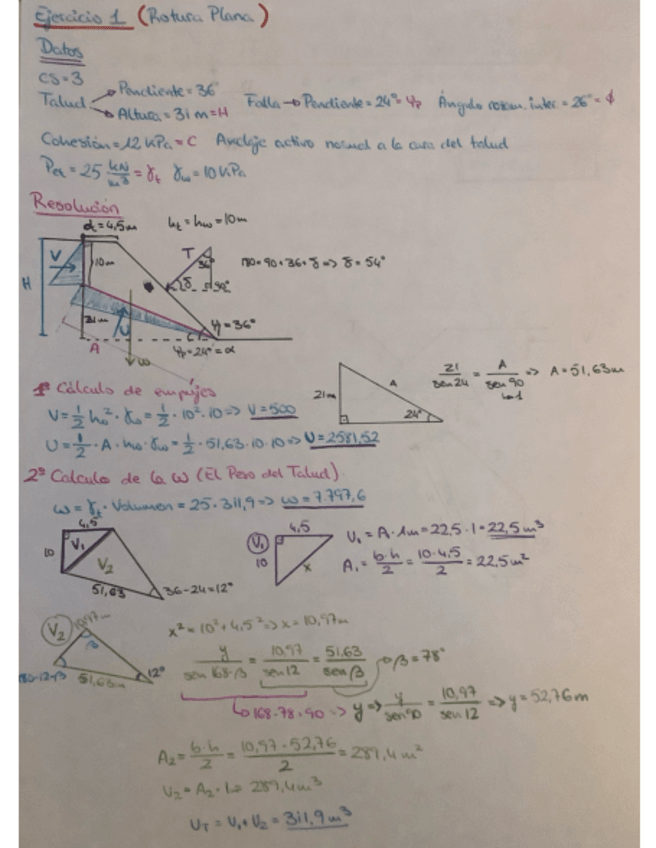 Ejercicio 1 (Rotura Plana)
Datos
CS=3
Talud → Pendiente=36°
→ Altura=31m=H
Falla → Pendiente=24°=Ψp Ángulo rozam. inter.=26°=ϕ
Cohesión=12KPa=C Anclaje activo normal a la cara del talud
= 25 kN/m³ = γt γw=10KPa
Resolución
d=4,5m ht=hw=10m
V 10m T 36° 180=90+36+δ=>δ=54°
H δ 90°
21m U Ψ=36°
A Ψp=24°=α
W
21/sen24 = A/sen90 => A=51,63m
21m A 24°
1º Cálculo de empujes
V=1/2 hw²·γw=1/2·10²·10=> V=500
U=1/2·A·hw·γw=1/2·51,63·10·10=>U=2581,52
2º Calculo de la W (El Peso del Talud)
W=γt·Volumen=25·311,9=> W=7.797,6
4,5 10 V1 V2 51,63 36-24=12°
V1 4,5 10 x
V1=A·1m=22,5·1=22,5m³
A1=b·h/2=10·4,5/2=22,5m²
V2 10,97m β 180-12-β 51,63m 12°
x²=10²+4,5²=>x=10,97m
y/sen168-β = 10,97/sen12 = 51,63/senβ → β=78°
→168-78=90 => y => y/sen90 = 10,97/sen12 => y=52,76m
A2=b·h/2=10,97·52,76/2=289,4m²
V2=A2·1=289,4m³
VT=V1+V2=311,9m³